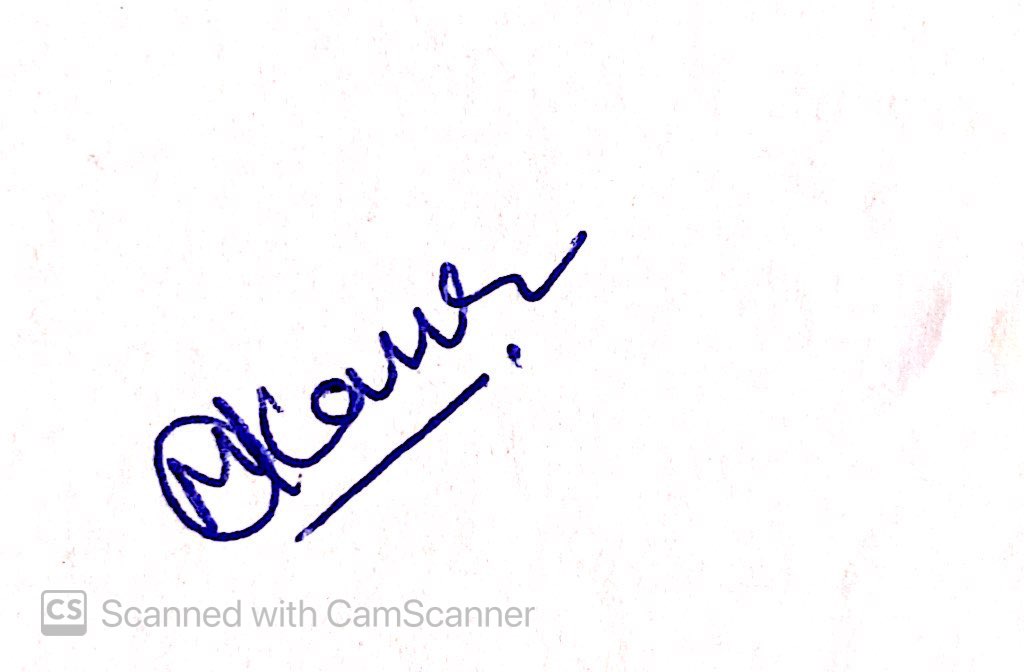 MKaur
CS Scanned with CamScanner